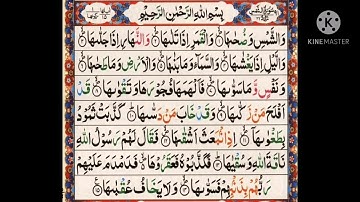 بِسْمِ اللهِ الرَّحْمٰنِ الرَّحِيْمِ
وَالشَّمْسِ وَضُحٰىهَا ۝ وَالْقَمَرِ اِذَا تَلٰىهَا ۝ وَالنَّهَارِ اِذَا جَلّٰىهَا ۝
وَالَّيْلِ اِذَا يَغْشٰىهَا ۝ وَالسَّمَآءِ وَمَا بَنٰىهَا ۝ وَالْاَرْضِ وَمَا طَحٰىهَا ۝
وَنَفْسٍ وَّمَا سَوّٰىهَا ۝ فَاَلْهَمَهَا فُجُوْرَهَا وَتَقْوٰىهَا ۝ قَدْ
اَفْلَحَ مَنْ زَكّٰىهَا ۝ وَقَدْ خَابَ مَنْ دَسّٰىهَا ۝ كَذَّبَتْ ثَمُوْدُ
بِطَغْوٰىهَا ۝ اِذِ انْۢبَعَثَ اَشْقٰىهَا ۝ فَقَالَ لَهُمْ رَسُوْلُ اللهِ
نَاقَةَ اللهِ وَسُقْيٰهَا ۝ فَكَذَّبُوْهُ فَعَقَرُوْهَا فَدَمْدَمَ عَلَيْهِمْ
رَبُّهُمْ بِذَنْۢبِهِمْ فَسَوّٰىهَا ۝ وَلَا يَخَافُ عُقْبٰهَا ۝
Made with
KINEMASTER